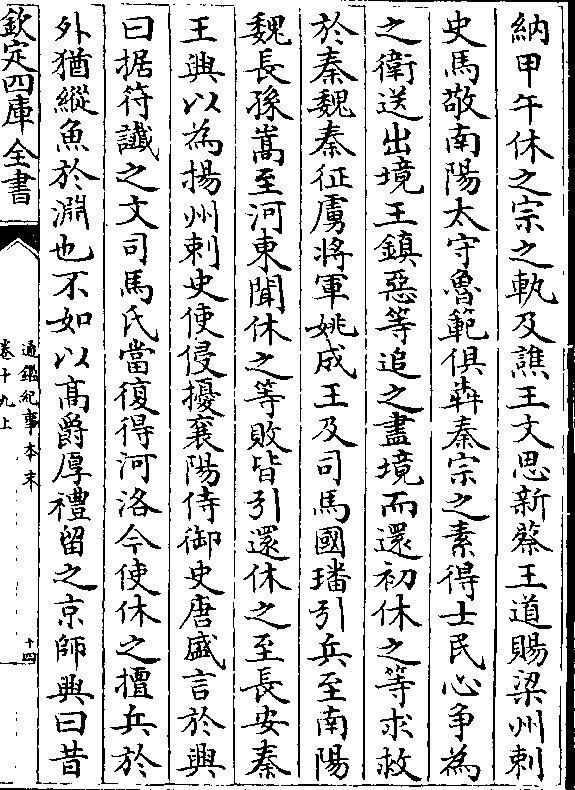 納甲午休之宗之軌及譙王文思新蔡王道賜梁州刺
史馬敬南陽太守魯範俱犇秦宗之素得士民心争為
之衛送出境王鎮惡等追之盡境而還初休之等求救
於秦魏秦征虜將軍姚成王及司馬國璠引兵至南陽
魏長孫嵩至河東聞休之等敗皆引還休之至長安秦
王興以為揚州刺史使侵擾襄陽侍御史唐盛言於興
曰据符讖之文司馬氏當復得河洛今使休之擅兵於
外猶縱魚於淵也不如以高爵厚禮留之京師興曰昔
欽定四庫全書
通鑑紀事本末
卷十九上
十四